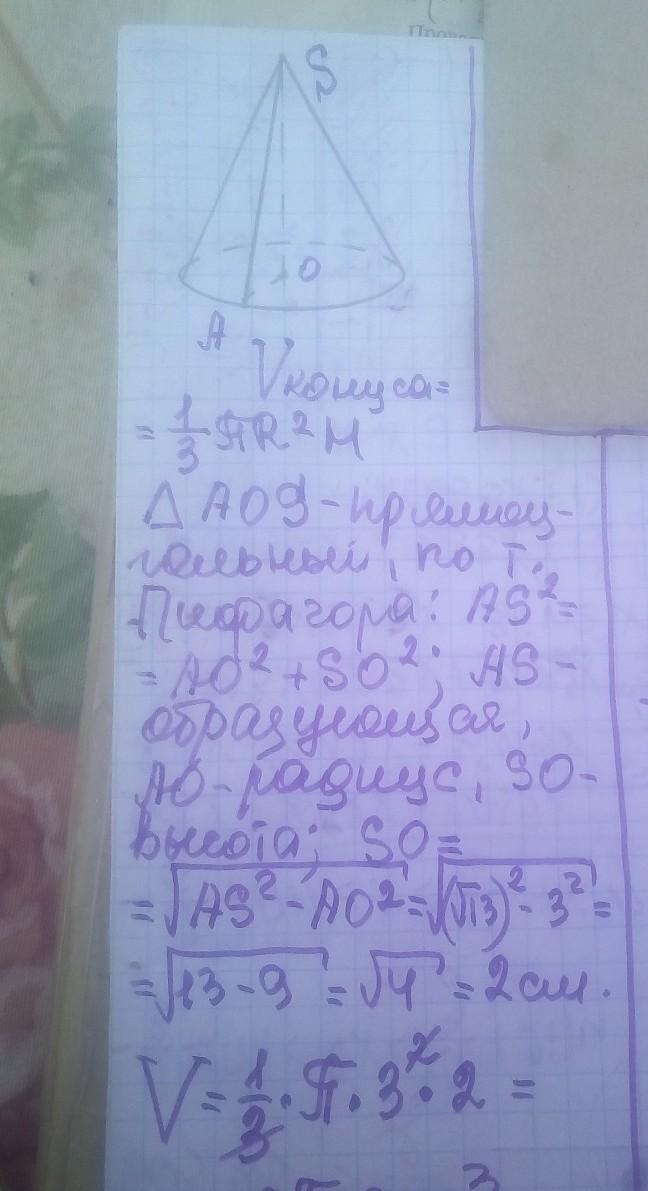 S
O
A
Vконуса=
= 1/3 πR²H
△ AOS - прямоу-
гольный, по т.
Пифагора: AS²=
= AO² + SO²; AS -
образующая,
AO - радиус, SO -
высота; SO =
= √(AS² - AO²) = √((√13)² - 3²) =
= √(13 - 9) = √4 = 2 см.
V = 1/3 · π · 3² · 2 =